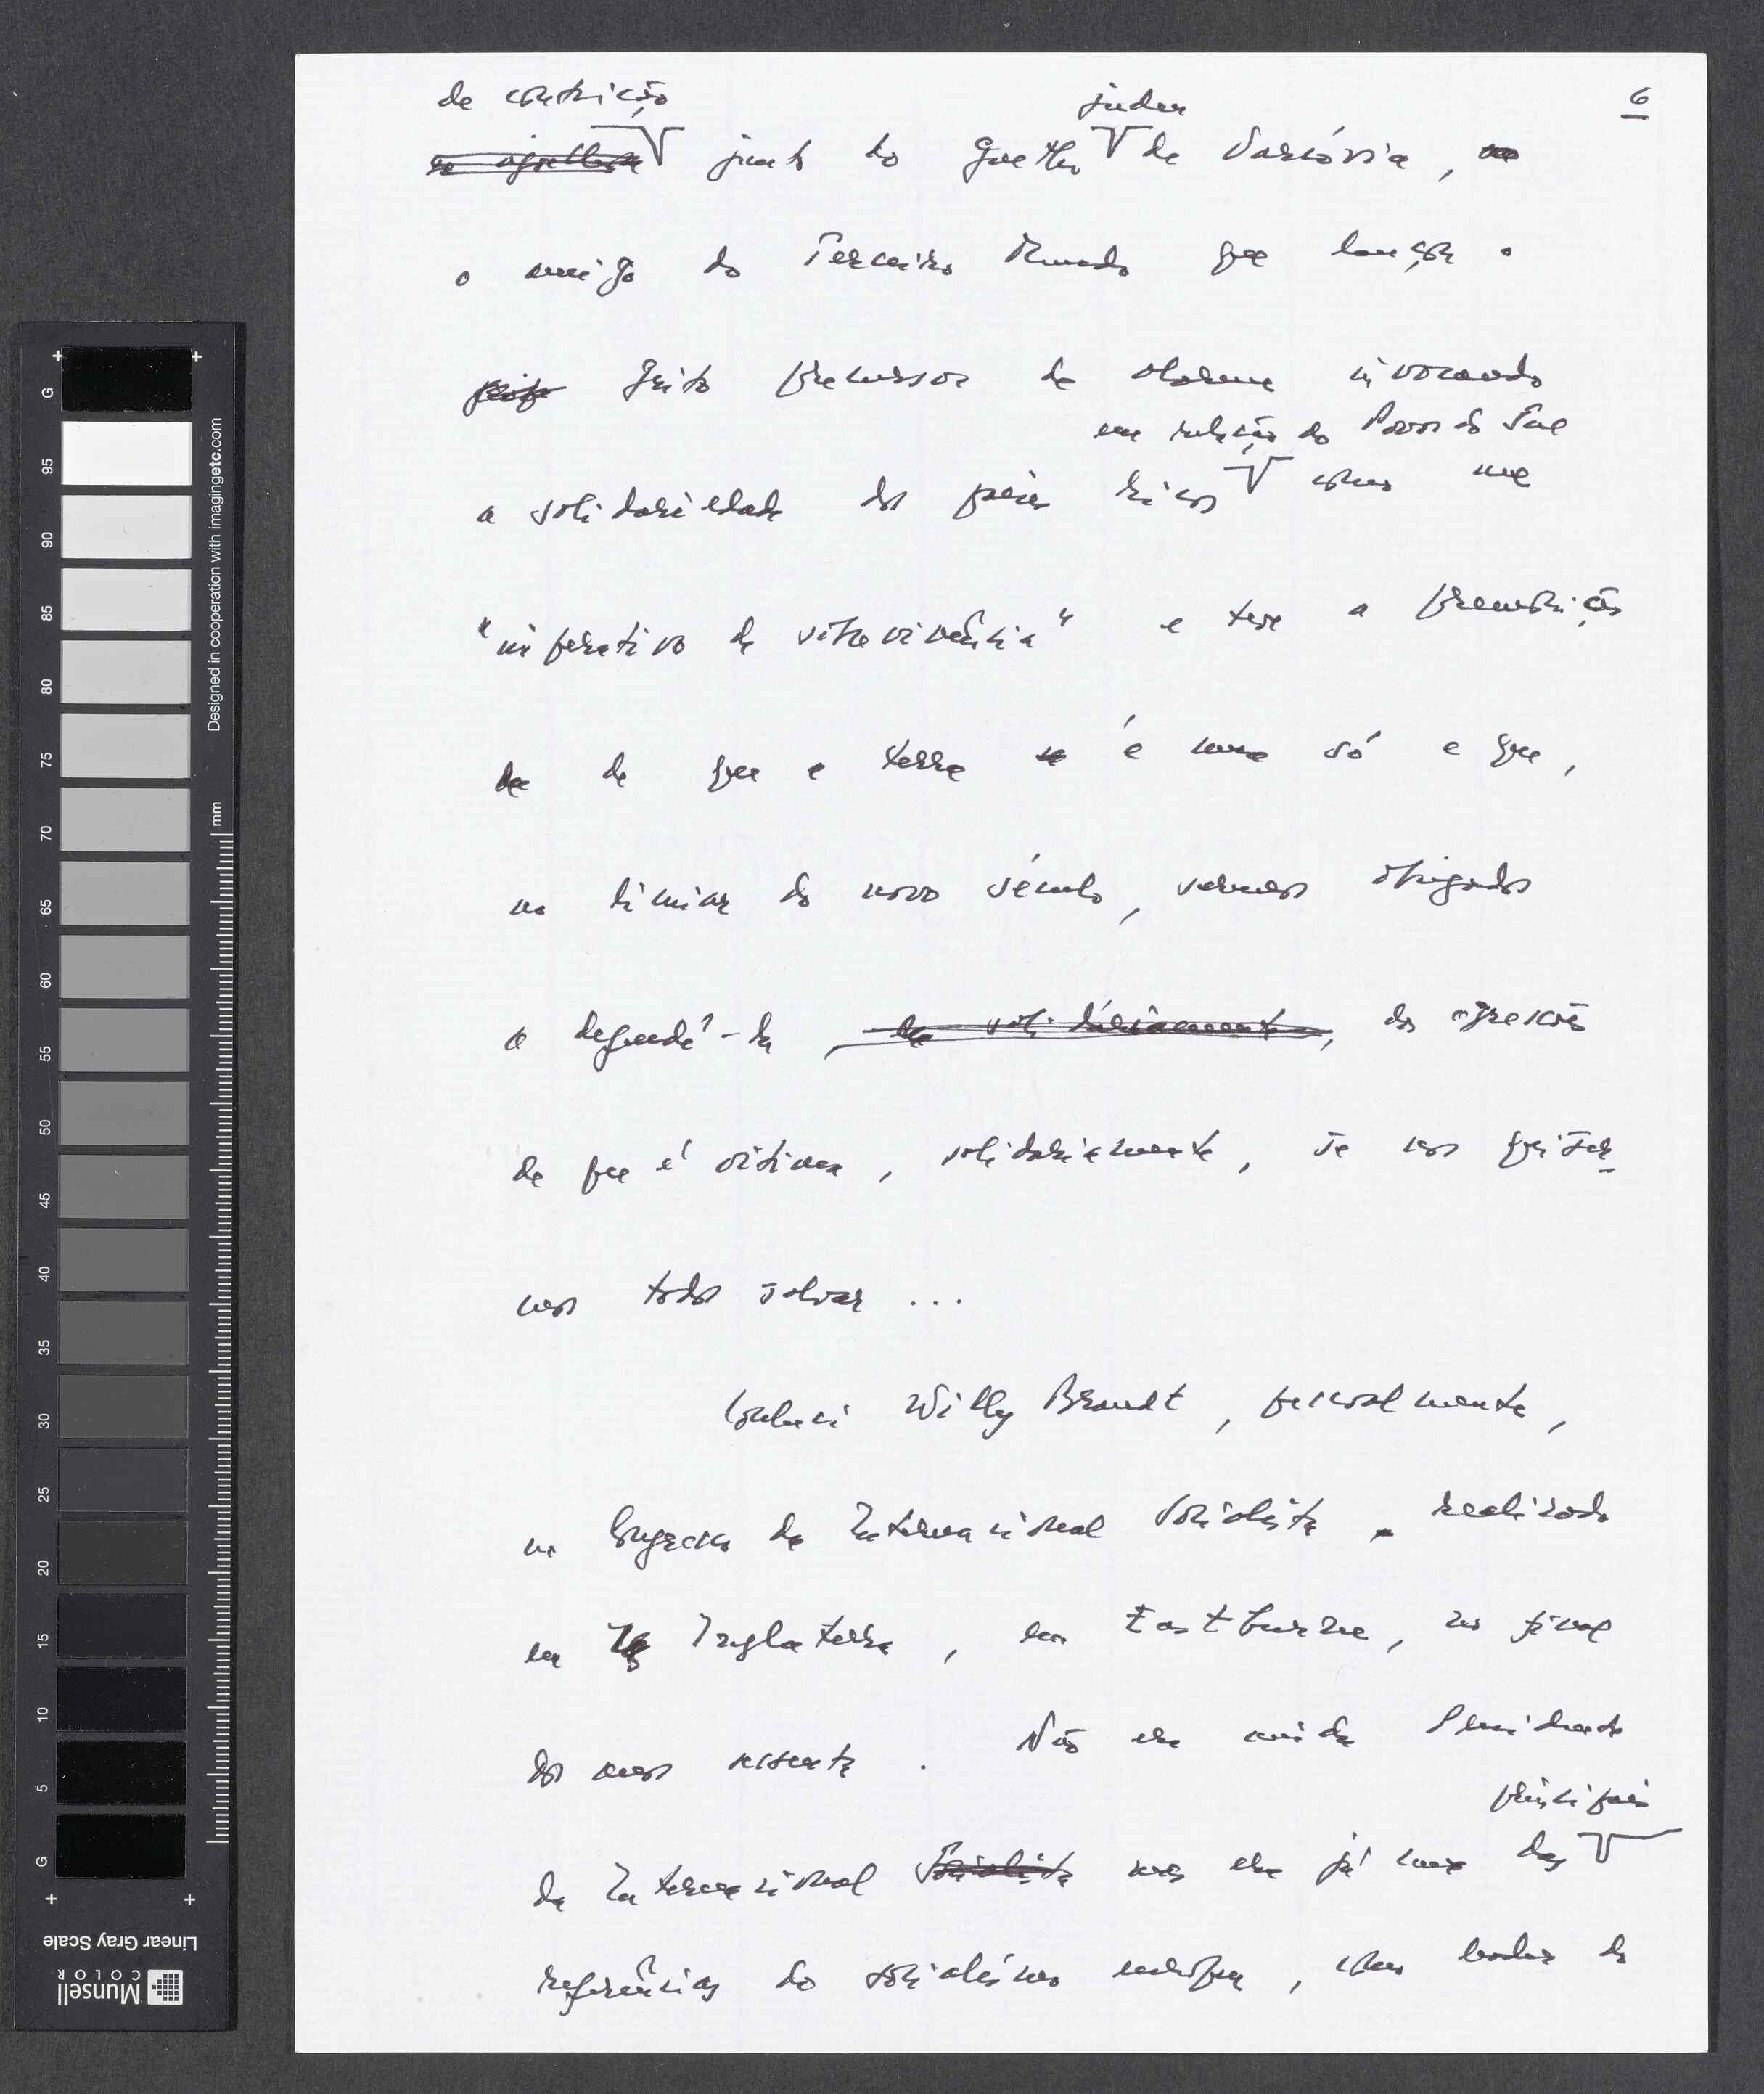 6
de contrição
judeu
junto do guetto de Varsóvia,
o amigo do Terceiro Mundo que lançou o
grito precursor de alarme invocando
em relação ao Povos do Sul
a solidariedade dos países ricos como um
"imperativo de sobrevivência" e teve a premonição
de que a terra é uma só e que,
no limiar do novo século, seremos obrigados
a defendê-la da solidáriamente, das agressões
de que é vítima, solidariamente, se nos quiser-
mos todos salvar ...
Conheci Willy Brandt, pessoalmente,
no Congresso da Internacional Socialista realizado
em Inglaterra, em Eastburne, no final
dos anos sessenta. Não era ainda Presidente
principais
da Internacional Socialista mas era já uma das
referências do socialismo europeu, como leader do
G
95
90
85
80
75
70
65
60
55
50
45
40
35
30
25
20
15
10
5
G
Designed in cooperation with imagingetc.com
mm
Linear Gray Scale
Munsell
COLOR